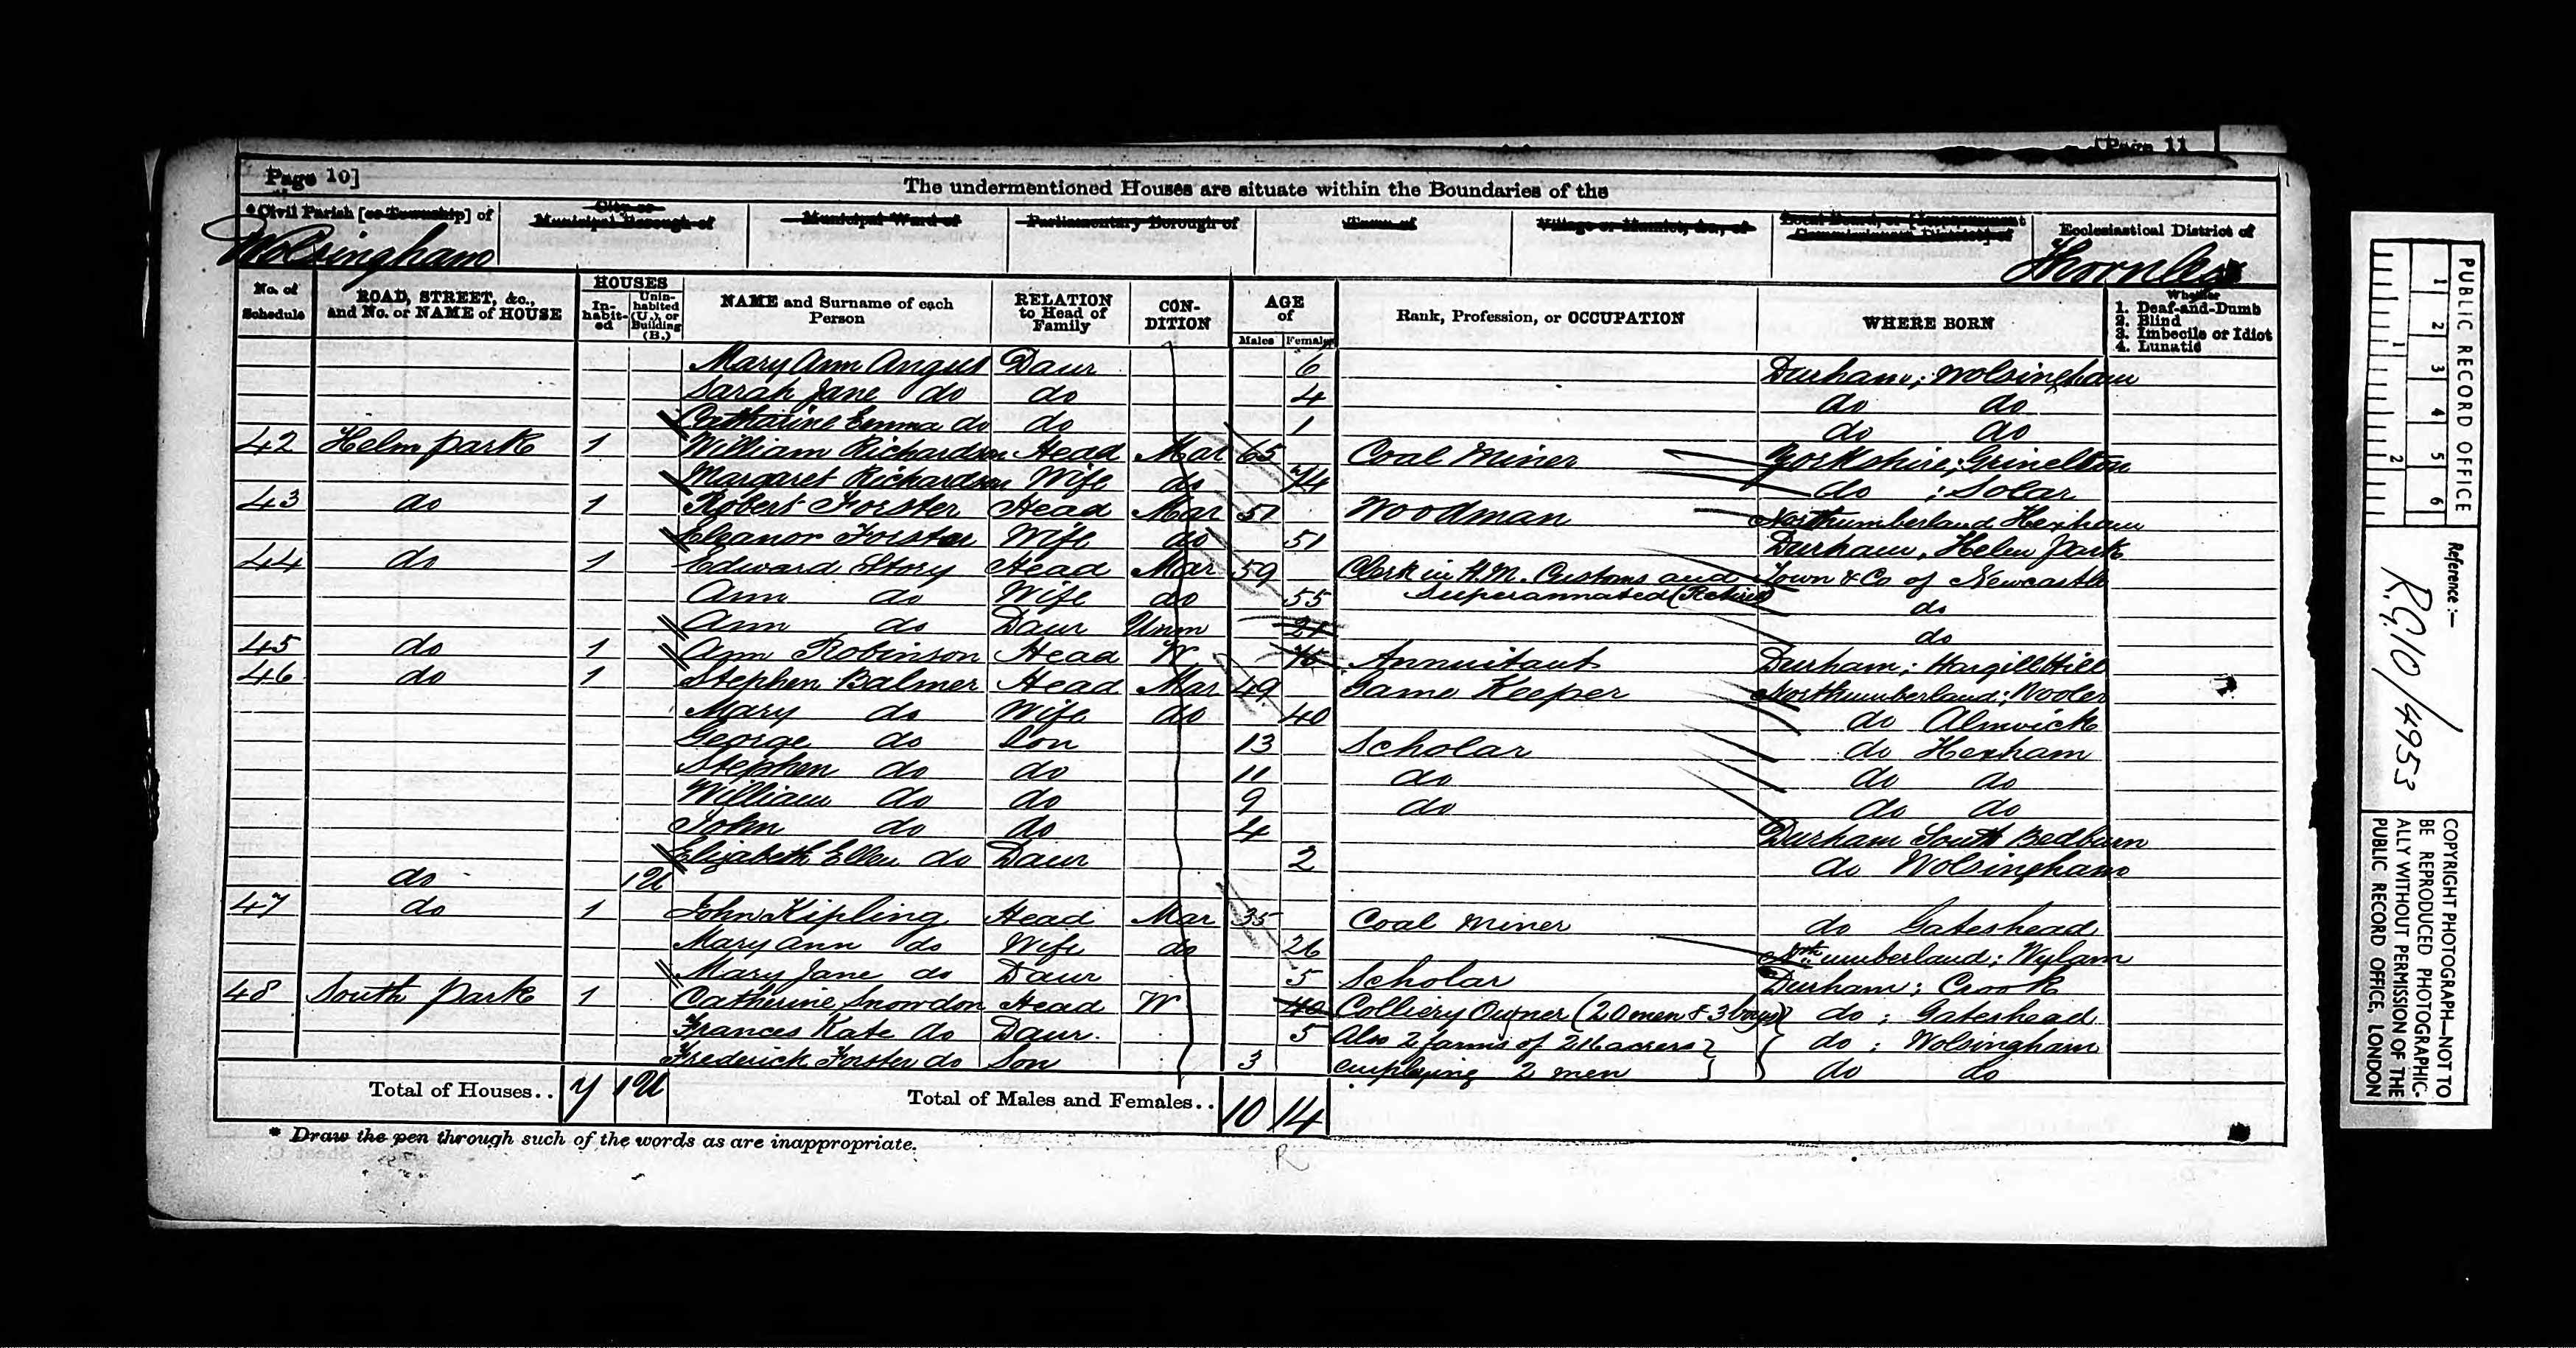 [Page 11
Page 10]
The undermentioned Houses are situate within the Boundaries of the
*Civil Parish [or Township] of
City or Municipal Borough of
Municipal Ward of
Parliamentary Borough of
Town of
Village or Hamlet, &c., of
Local Board, or [Improvement Commissioners District] of
Ecclesiastical District of
Wolsingham
Thornley
No. of Schedule
ROAD, STREET, &c., and No. or NAME of HOUSE
HOUSES
In-habit-ed
Unin-habited (U.), or Building (B.)
NAME and Surname of each Person
RELATION to Head of Family
CON-DITION
AGE of
Males
Females
Rank, Profession, or OCCUPATION
WHERE BORN
Whether
1. Deaf-and-Dumb
2. Blind
3. Imbecile or Idiot
4. Lunatic
Mary Ann Angus Daur 6 Durham; Wolsingham
Sarah Jane do do 4 do do
Catharine Emma do do 1 do do
42 Helm park 1 William Richardson Head Mar 65 Coal Miner Yorkshire; Grinelton
Margaret Richardson Wife do 74 do ; Solar
43 do 1 Robert Forster Head Mar 51 Woodman Northumberland Hexham
Eleanor Forster Wife do 51 Durham, Helm Park
44 do 1 Edward Story Head Mar 59 Clerk in H.M. Customs and Town & Co of Newcastle
Ann do Wife do 55 Superannuated (Retired) do
Ann do Daur Unm 21 do
45 do 1 Ann Robinson Head W Annuitant Durham; Hargill Hill
46 do 1 Stephen Balmer Head Mar 49 Game Keeper Northumberland; Wooler
Mary do Wife do 40 do Alnwick
George do Son 13 Scholar do Hexham
Stephen do do 11 do do do
William do do 9 do do do
John do do 4 Durham South Bedburn
Elizabeth Ellen do Daur 2 do Wolsingham
do 1U
47 do 1 John Kipling Head Mar 35 Coal Miner do Gateshead
Mary Ann do Wife do 26 Nthumberland; Wylam
Mary Jane do Daur 5 Scholar Durham; Crook
48 South Park 1 Catherine Snowdon Head W 40 Colliery Owner (20 men & 3 boys) do ; Gateshead
Frances Kate do Daur. 5 Also 2 farms of 216 acres do ; Wolsingham
Frederick Forster do Son 3 employing 2 men do do
Total of Houses.. 7 1U Total of Males and Females.. 10 14
* Draw the pen through such of the words as are inappropriate.
R
PUBLIC RECORD OFFICE
1 2 3 4 5 6
1 2
Reference:-
R.G.10/4953
COPYRIGHT PHOTOGRAPH—NOT TO BE REPRODUCED PHOTOGRAPHIC-ALLY WITHOUT PERMISSION OF THE PUBLIC RECORD OFFICE, LONDON